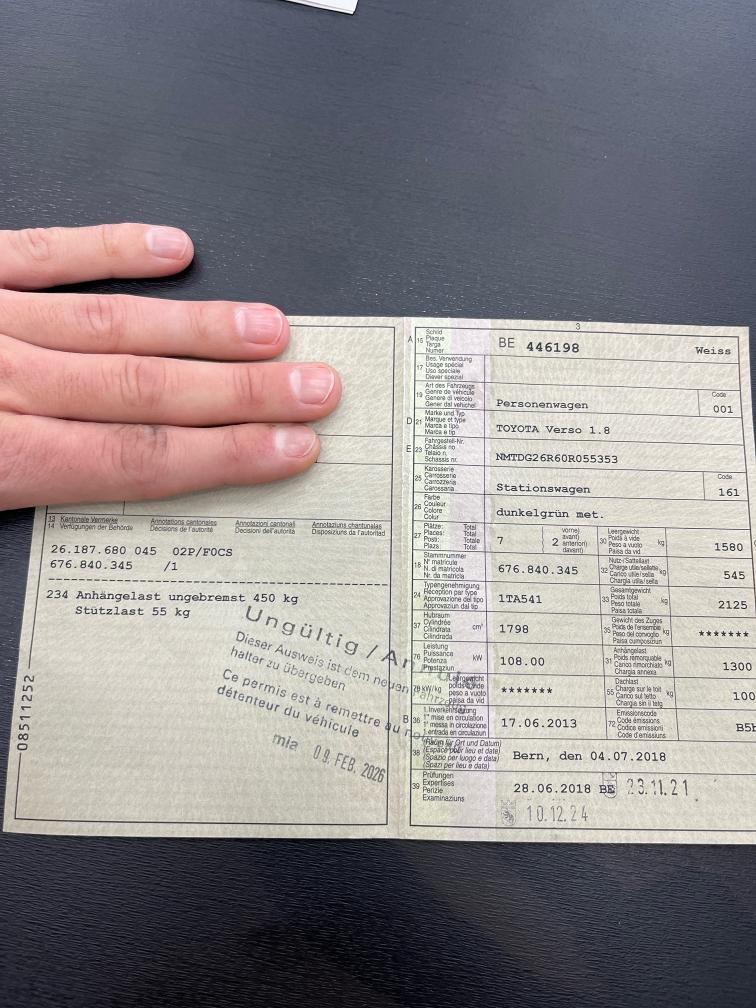 13 Kantonale Vermerke Annotations cantonales Annotazioni cantonali Annotaziuns chantunalas
14 Verfügungen der Behörde Décisions de l'autorité Decisioni dell'autorità Disposiziuns da l'autoritad
26.187.680 045 02P/F0CS
676.840.345 /1
234 Anhängelast ungebremst 450 kg
Stützlast 55 kg
Ungültig /
Dieser Ausweis ist dem neuen Fahrzeug-
halter zu übergeben
Ce permis est à remettre au
détenteur du véhicule
mia 09. FEB. 2026
08511252
3
A 15 Schild
Plaque
Targa
Numer
BE 446198 Weiss
17 Bes. Verwendung
Usage spécial
Uso speciale
Diever spezial
19 Art des Fahrzeugs
Genre de véhicule
Genere di veicolo
Gener dal vehichel
Personenwagen
Code
001
D 21 Marke und Typ
Marque et type
Marca e tipo
Marca e tip
TOYOTA Verso 1.8
E 23 Fahrgestell-Nr.
Châssis no
Telaio n.
Schassis nr.
NMTDG26R60R055353
25 Karosserie
Carrosserie
Carrozzeria
Carossaria
Stationswagen
Code
161
26 Farbe
Couleur
Colore
Colur
dunkelgrün met.
27 Plätze: Total
Places: Total
Posti: Totale
Plazs: Total
7 2
vorne)
avant)
anteriori)
davant)
30 Leergewicht
Poids à vide
Peso a vuoto
Paisa da vid
kg
1580
18 Stammnummer
N° matricule
N. di matricola
Nr. da matricla
676.840.345
32 Nutz-/Sattellast
Charge utile/sellette
Carico utile/sella
Chargia utila/sella
kg
545
24 Typengenehmigung
Réception par type
Approvazione del tipo
Approvaziun dal tip
1TA541
33 Gesamtgewicht
Poids total
Peso totale
Paisa totala
kg
2125
37 Hubraum
Cylindrée
Cilindrata
Cilindrada
cm³
1798
35 Gewicht des Zuges
Poids de l'ensemble
Peso del convoglio
Paisa cumposiziun
kg
*******
76 Leistung
Puissance
Potenza
Prestaziun
kW
108.00
31 Anhängelast
Poids remorquable
Carico rimorchiato
Chargia annexa
kg
1300
78 kW/kg
Leergewicht
poids à vide
peso a vuoto
paisa da vid
*******
55 Dachlast
Charge sur le toit
Carico sul tetto
Chargia sin il tetg
kg
100
B 36 1. Inverkehrsetzung
1re mise en circulation
1a messa in circolazione
1. entrada en circulaziun
17.06.2013
72 Emissionscode
Code émissions
Codice emissioni
Code d'emissiuns
38 (Raum für Ort und Datum)
(Espace pour lieu et date)
(Spazio per luogo e data)
(Spazi per lieu e data)
Bern, den 04.07.2018
39 Prüfungen
Expertises
Perizie
Examinaziuns
28.06.2018 BE 23.11.21
10.12.24